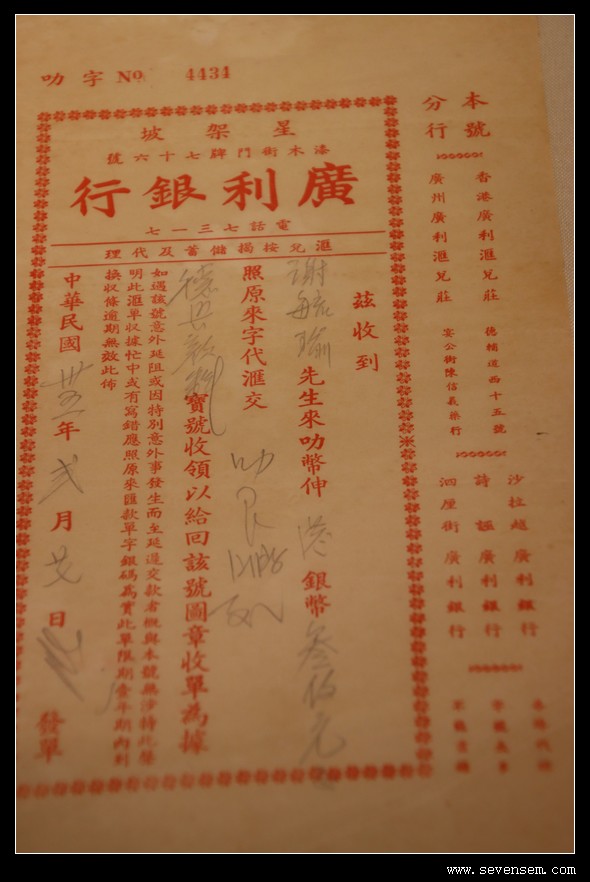 叻字 No 4434
星架坡
漆木街門牌七十六號
廣利銀行
電話七三一七
滙兌按揭儲蓄及代理
茲收到
謝毓瑜先生來叻幣伸港銀幣叁佰元
照原來字代滙交
寶號收領以給回該號圖章收單為據
如遇該號意外延阻或因特別意外事發生而至延遲交款者概與本號無涉特此聲
明此滙單收據忙中或有寫錯應照原來匯款單字銀碼為實此單限期壹年期內到
換收條逾期無效此佈
中華民國卅五年弍月日
發單
本號
分行
香港廣利滙兌莊 德輔道西十五號
廣州廣利滙兌莊 宴公街陳信義樂行
沙拉越
詩誣
泗厘街
廣利銀行
廣利銀行
廣利銀行
www.sevensem.com